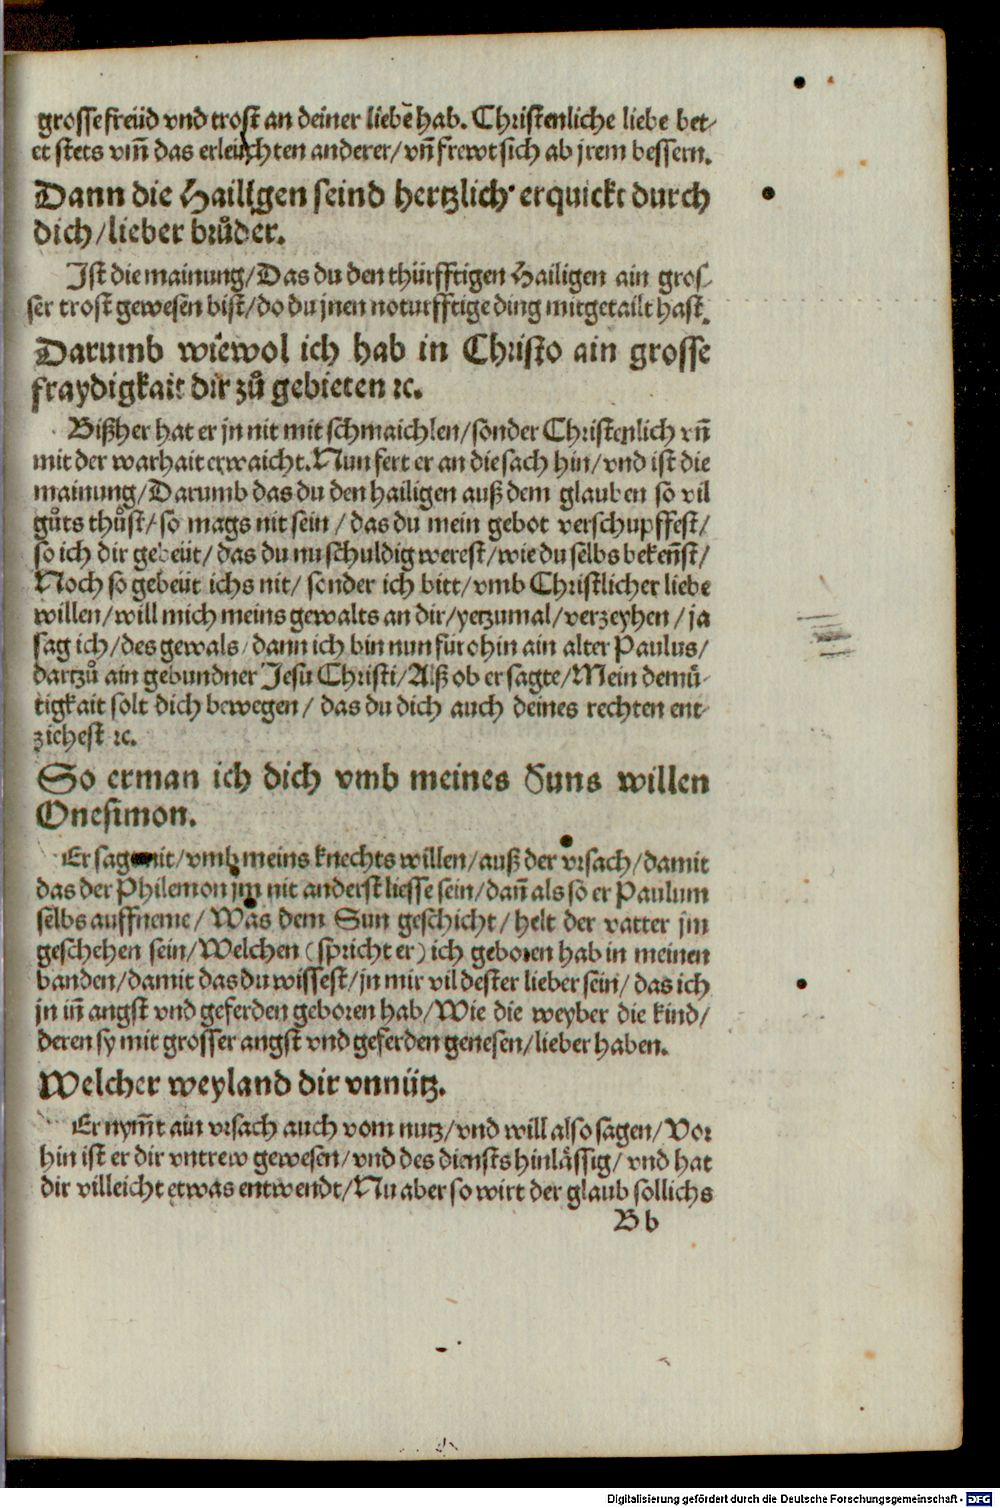 grosse freüd vnd trost an deiner liebē hab. Christenliche liebe bet⸗
et stets vm̄ das erleüchten anderer/ vn̄ frewt sich ab jrem bessern.
Dann die Hailigen seind hertzlich erquickt durch
dich/ lieber brůder.
Ist die mainung/ Das du den thürfftigen Hailigen ain gros⸗
ser trost gewesen bist/ do du jnen noturfftige ding mitgetailt hast.
Darumb wiewol ich hab in Christo ain grosse
fraydigkait dir zů gebieten ⁊c.
Bißher hat er jn nit mit schmaichlen/ sonder Christenlich vn̄
mit der warhait erwaicht. Nun fert er an die sach hin/ vnd ist die
mainung/ Darumb das du den hailigen auß dem glauben so vil
gůts thůst/ so mags nit sein / das du mein gebot verschupffest/
so ich dir gebeüt/ das du nu schuldig werest/ wie du selbs beken̄st/
Noch so gebeüt ichs nit/ sonder ich bitt/ vmb Christlicher liebe
willen/ will mich meins gewalts an dir/ yetzumal/ verzeyhen / ja
sag ich/ des gewals/ dann ich bin nun fürohin ain alter Paulus/
dartzů ain gebundner Jesu Christi/ Alß ob er sagte/ Mein demü⸗
tigkait solt dich bewegen/ das du dich auch deines rechten ent⸗
ziehest ⁊c.
So erman ich dich vmb meines Suns willen
Onesimon.
Er sagt nit/ vmb meins knechts willen/ auß der vrsach/ damit
das der Philemon jm nit anderst liesse sein/ dan̄ als so er Paulum
selbs auffneme/ Was dem Sun geschicht/ helt der vatter jm
geschehen sein/ Welchen (spricht er) ich geboren hab in meinen
banden/ damit das du wissest/ jn mir vil dester lieber sein/ das ich
jn in̄ angst vnd geferden geboren hab/ Wie die weyber die kind/
deren sy mit grosser angst vnd geferden genesen/ lieber haben.
Welcher weyland dir vnnütz.
Er nym̄t ain vrsach auch vom nutz/ vnd will also sagen/ Vor
hin ist er dir vntrew gewesen/ vnd des diensts hinlässig/ vnd hat
dir villeicht etwas entwendt/ Nu aber so wirt der glaub sollichs
Bb
Digitalisierung gefördert durch die Deutsche Forschungsgemeinschaft - DFG